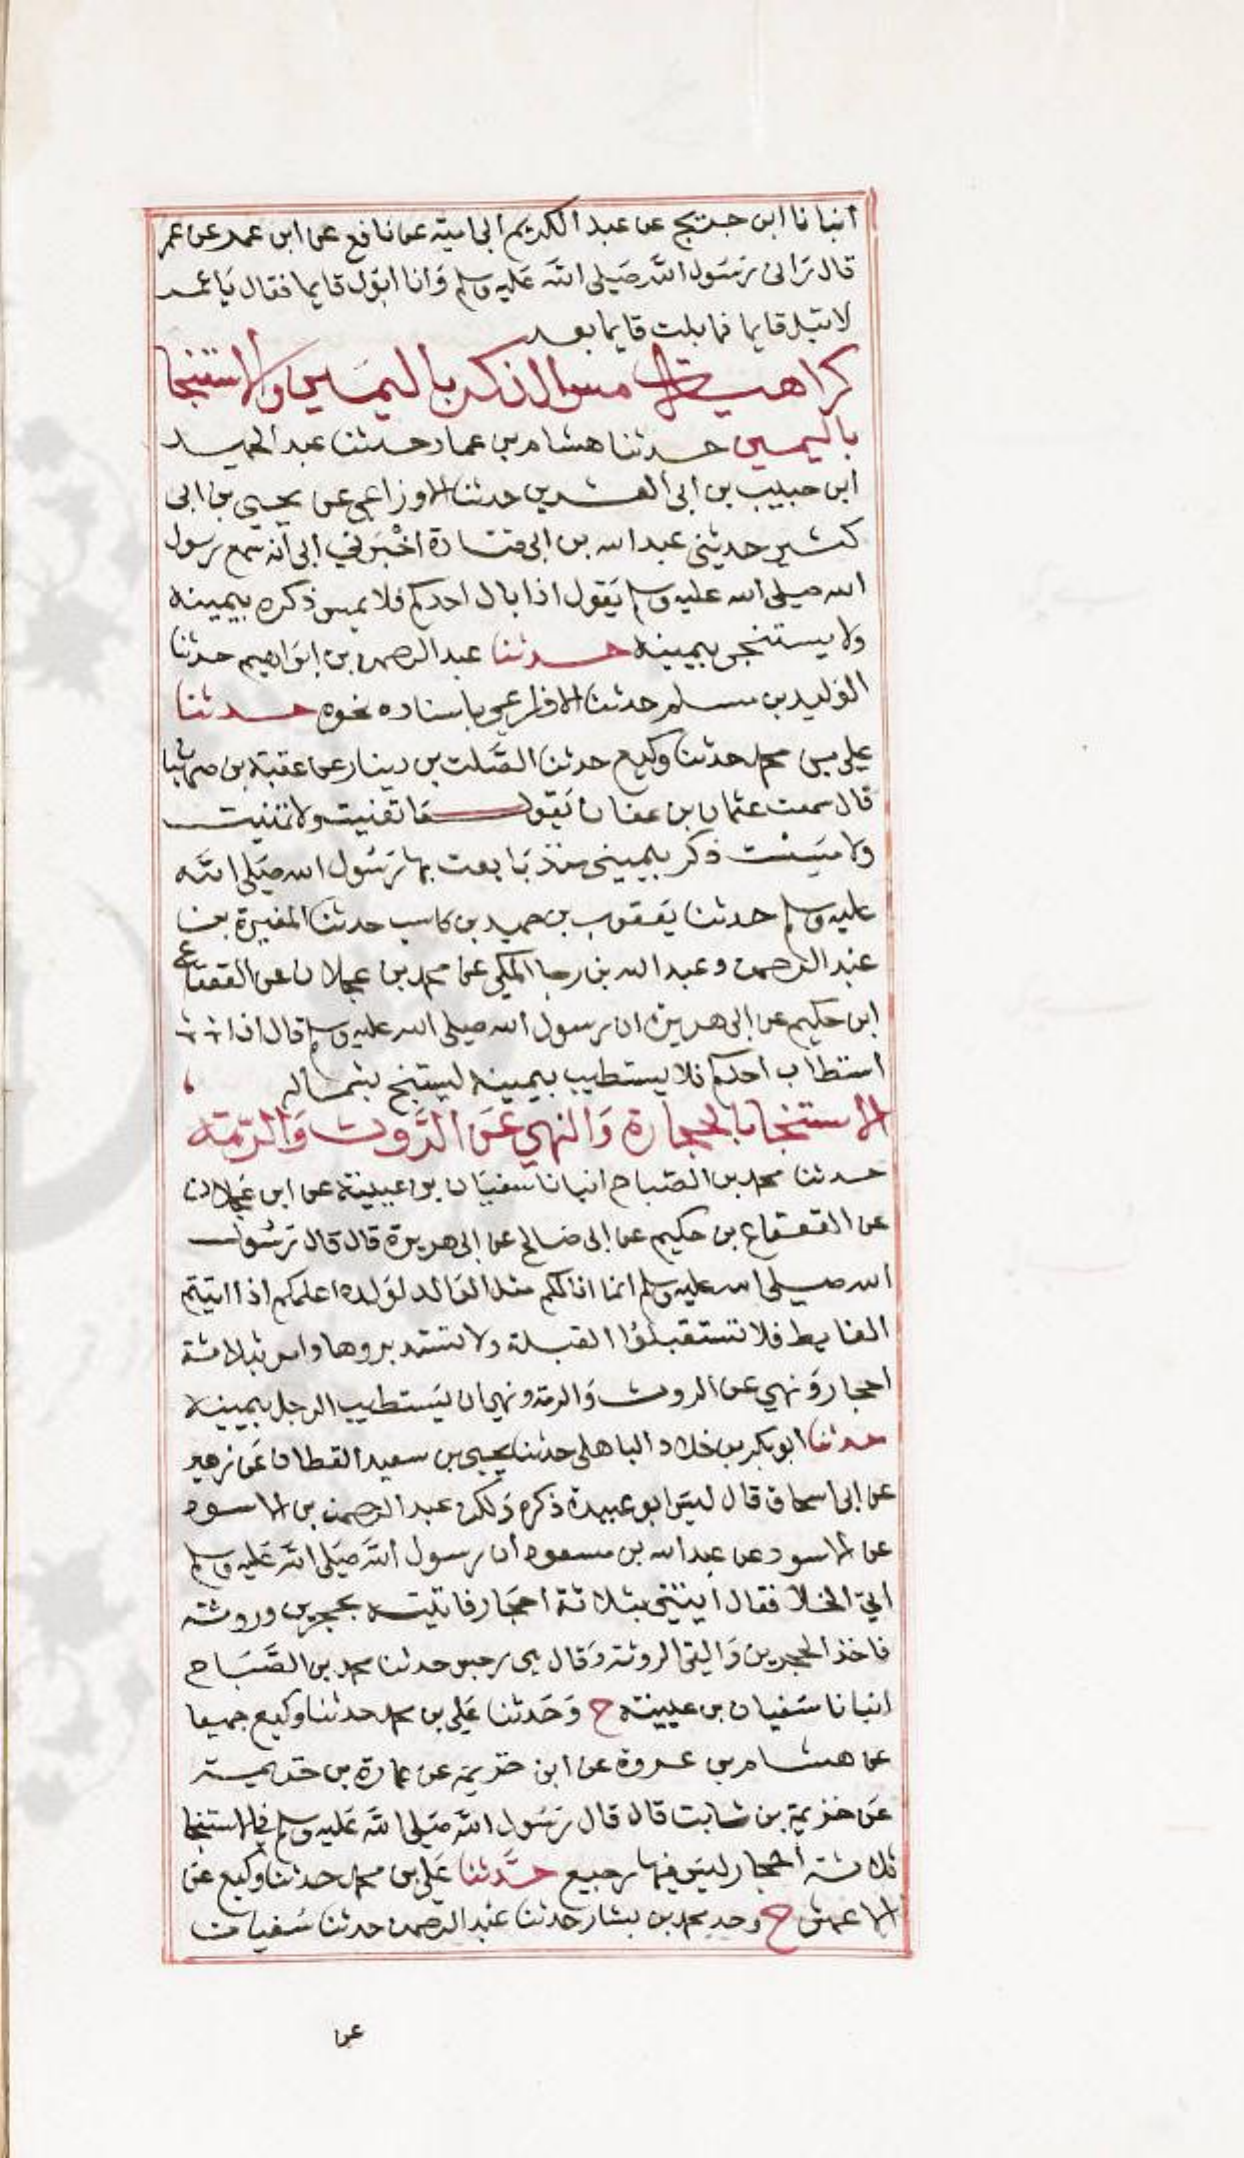 انبانا ابن جريج عن عبد الكريم ابى امية عن نافع عن ابن عمر عن عمر
قال رانى رسول الله صلى الله عليه وسلم وانا ابول قايما فقال يا عمر
لا تبل قايما فما بلت قايما بعد
كراهية مس الذكر باليمين والاستنجا
باليمين حدثنا هشام بن عمار حدثنا عبد الحميد
ابن حبيب بن ابى العشرين حدثنا الاوزاعي عن يحيى بن ابى
كثير حدثنى عبد الله بن ابى قتادة اخبرني ابى انه سمع رسول
الله صلى الله عليه وسلم يقول اذا بال احدكم فلا يمس ذكره بيمينه
ولا يستنجى بيمينه حدثنا عبد الرحمن بن ابراهيم حدثنا
الوليد بن مسلم حدثنا الاوزاعي باسناده نحوه حدثنا
علي بن محمد حدثنا وكيع حدثنا الصلت بن دينار عن عقبة بن صهبا
قال سمعت عثمان بن عفان يقول ما تغنيت ولا تمنيت
ولا مسست ذكر بيمينى منذ بايعت بها رسول الله صلى الله
عليه وسلم حدثنا يعقوب بن حميد بن كاسب حدثنا المغيرة بن
عبد الرحمن وعبد الله بن رجا المكي عن محمد بن عجلان عن القعقاع
ابن حكيم عن ابى هريرة ان رسول الله صلى الله عليه وسلم قال اذا
استطاب احدكم فلا يستطيب بيمينه ليستنج بشماله
الاستنجا بالحجارة والنهي عن الروث والرمة
حدثنا محمد بن الصباح انبانا سفيان بن عيينة عن ابن عجلان
عن القعقاع بن حكيم عن ابى صالح عن ابى هريرة قال قال رسول
الله صلى الله عليه وسلم انما انا لكم مثل الوالد لولده اعلمكم اذا اتيتم
الغايط فلا تستقبلوا القبلة ولا تستدبروها وامر بثلاثة
احجار ونهي عن الروث والرمة ونهى ان يستطيب الرجل بيمينه
حدثنا ابو بكر بن خلاد الباهلى حدثنا يحيى بن سعيد القطان عن زهير
عن ابى اسحاق قال ليس ابو عبيدة ذكره ولكن عبد الرحمن بن الاسود
عن الاسود عن عبد الله بن مسعود ان رسول الله صلى الله عليه وسلم
اتى الخلا فقال ايتنى بثلاثة احجار فاتيته بحجرين وروثة
فاخذ الحجرين والقى الروثة وقال هى رجس حدثنا محمد بن الصباح
انبانا سفيان بن عيينة ح وحدثنا علي بن محمد حدثنا وكيع جميعا
عن هشام بن عروة عن ابن خزيمة عن عمارة بن خزيمة
عن خزيمة بن ثابت قال قال رسول الله صلى الله عليه وسلم في الاستنجا
ثلاثة احجار ليس فيها رجيع حدثنا علي بن محمد حدثنا وكيع عن
الاعمش ح وحد محمد بن بشار حدثنا عبد الرحمن حدثنا سفيان
عن